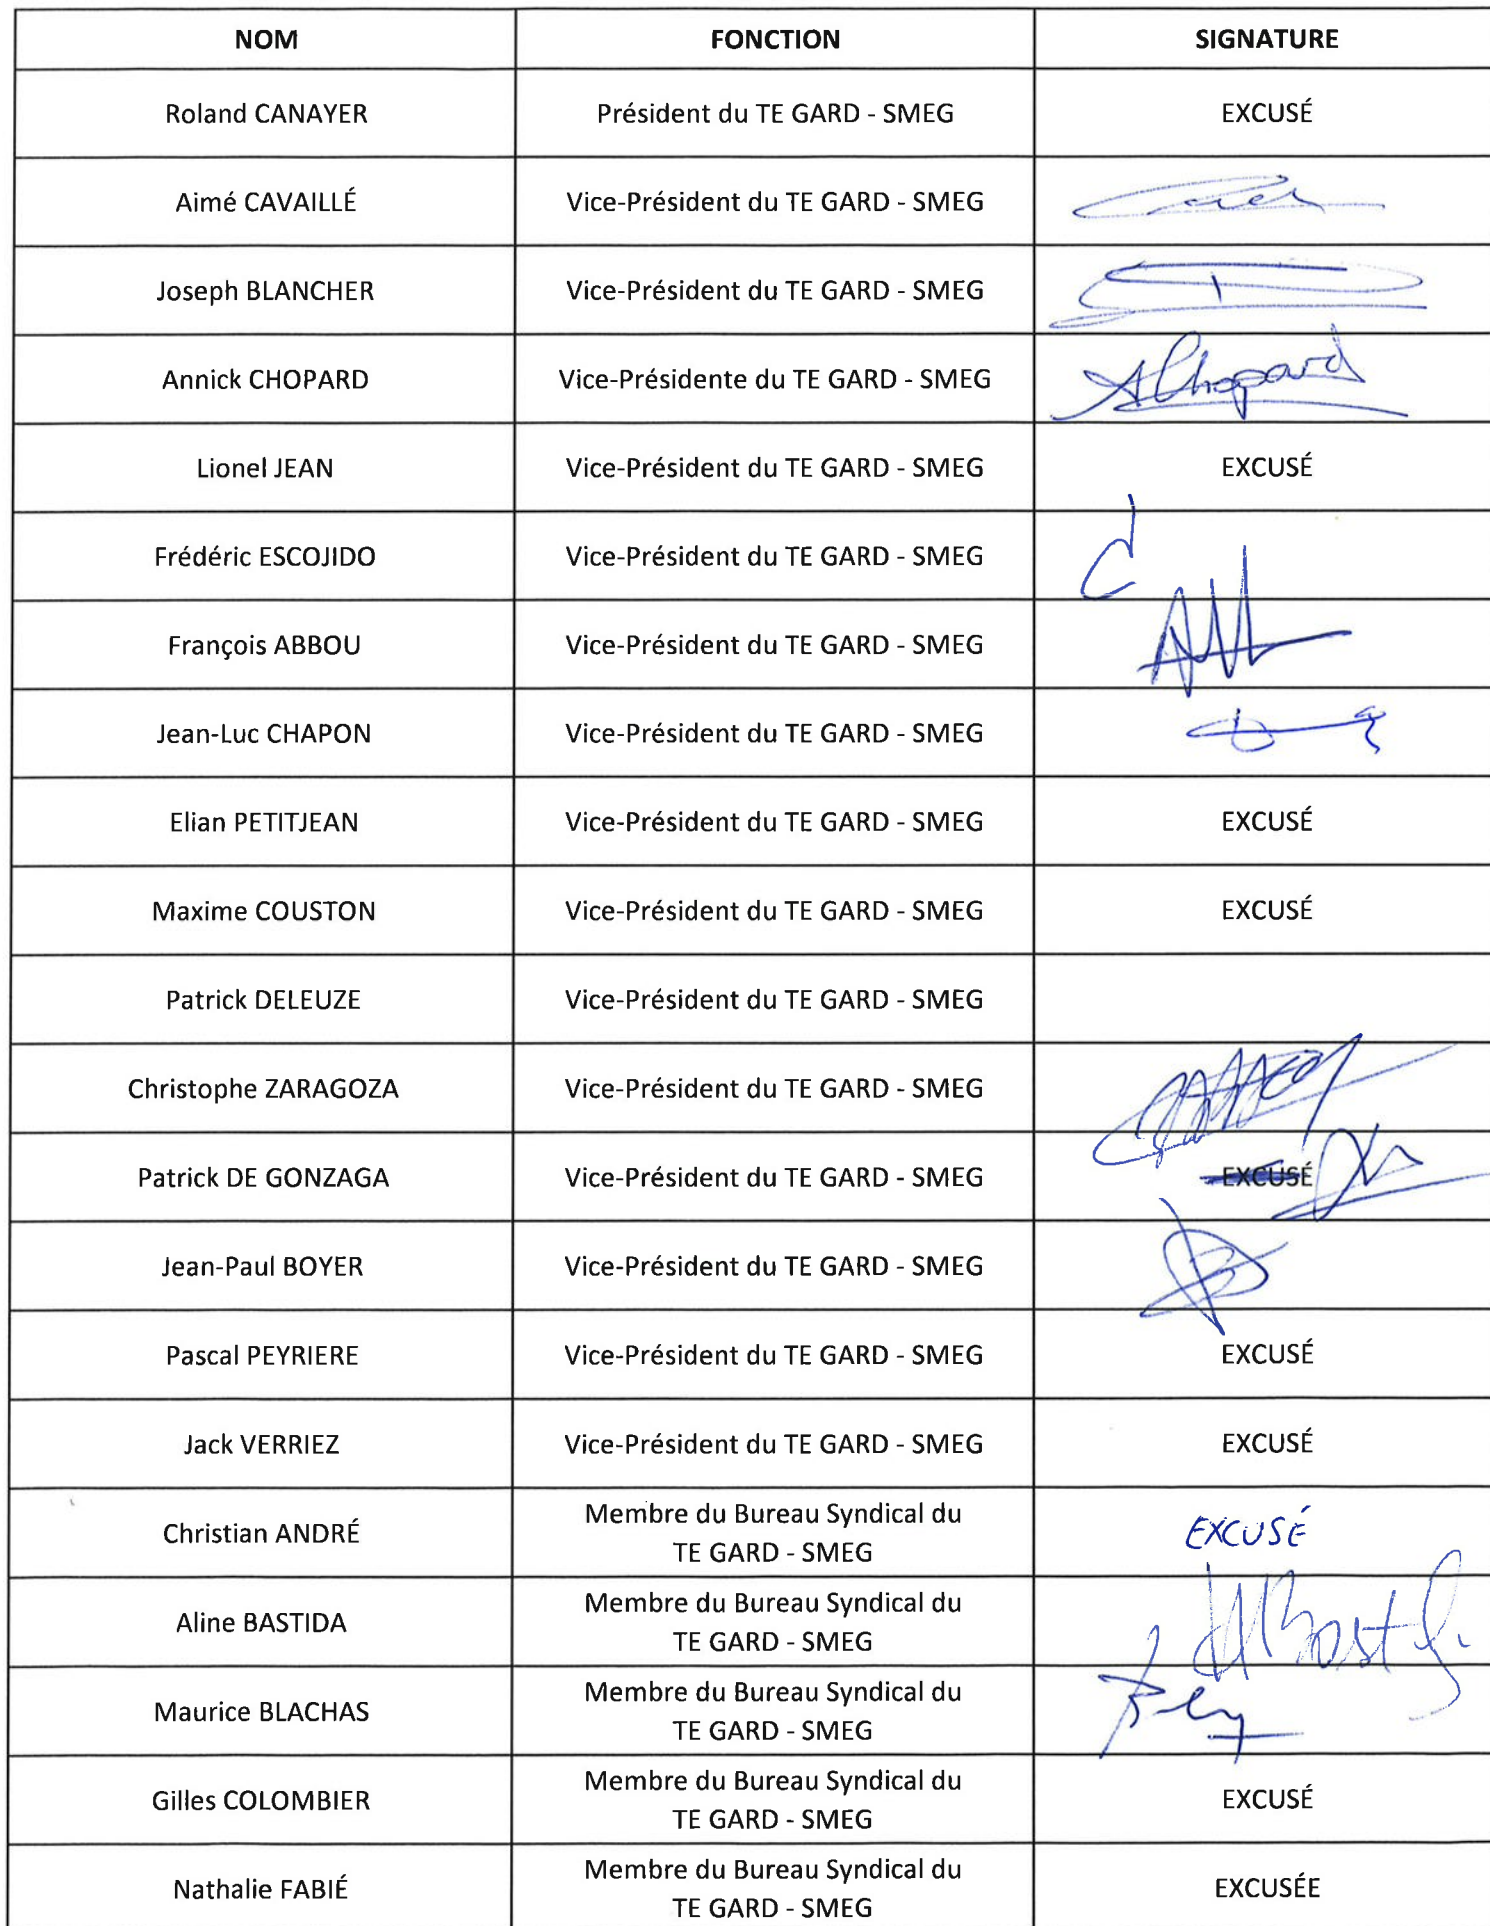 NOM FONCTION SIGNATURE
Roland CANAYER Président du TE GARD - SMEG EXCUSÉ
Aimé CAVAILLÉ Vice-Président du TE GARD - SMEG
Joseph BLANCHER Vice-Président du TE GARD - SMEG
Annick CHOPARD Vice-Présidente du TE GARD - SMEG AChopard
Lionel JEAN Vice-Président du TE GARD - SMEG EXCUSÉ
Frédéric ESCOJIDO Vice-Président du TE GARD - SMEG
François ABBOU Vice-Président du TE GARD - SMEG
Jean-Luc CHAPON Vice-Président du TE GARD - SMEG
Elian PETITJEAN Vice-Président du TE GARD - SMEG EXCUSÉ
Maxime COUSTON Vice-Président du TE GARD - SMEG EXCUSÉ
Patrick DELEUZE Vice-Président du TE GARD - SMEG
Christophe ZARAGOZA Vice-Président du TE GARD - SMEG
Patrick DE GONZAGA Vice-Président du TE GARD - SMEG EXCUSÉ
Jean-Paul BOYER Vice-Président du TE GARD - SMEG
Pascal PEYRIERE Vice-Président du TE GARD - SMEG EXCUSÉ
Jack VERRIEZ Vice-Président du TE GARD - SMEG EXCUSÉ
Christian ANDRÉ Membre du Bureau Syndical du
TE GARD - SMEG EXCUSÉ
Aline BASTIDA Membre du Bureau Syndical du
TE GARD - SMEG
Maurice BLACHAS Membre du Bureau Syndical du
TE GARD - SMEG
Gilles COLOMBIER Membre du Bureau Syndical du
TE GARD - SMEG EXCUSÉ
Nathalie FABIÉ Membre du Bureau Syndical du
TE GARD - SMEG EXCUSÉE